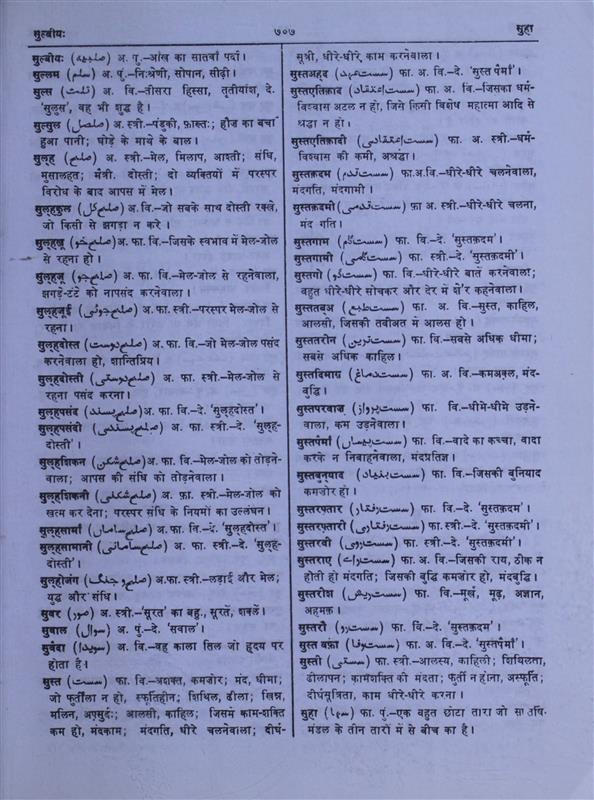 सुल्बीयः
७०७
सुहा
सुल्बीयः (صلبیہ) अ. पुं.–आंख का सातवाँ पर्दा।
सुल्लम (سلم) अ. पुं.–निःश्रेणी, सोपान, सीढ़ी।
सुल्स (ثلث) अ. वि.–तीसरा हिस्सा, तृतीयांश, दे.
'सुलुस', वह भी शुद्ध है।
सुल्सुल (صلصل) अ. स्त्री.–पंडुकी, फ़ाख़्तः; हौज का बचा
हुआ पानी; घोड़े के माथे के बाल।
सुल्ह (صلح) अ. स्त्री.–मेल, मिलाप, आश्ती; संधि,
मुसालहत; मैत्री, दोस्ती; दो व्यक्तियों में परस्पर
विरोध के बाद आपस में मेल।
सुल्हकुल (صلح کل) अ. वि.–जो सबके साथ दोस्ती रक्खे,
जो किसी से झगड़ा न करे।
सुल्हख़ू (صلح خو) अ. फा. वि.–जिसके स्वभाव में मेल-जोल
से रहना हो।
सुल्हजू (صلح جو) अ. फा. वि.–मेल-जोल से रहनेवाला,
झगड़े-टंटे को नापसंद करनेवाला।
सुल्हजूई (صلح جوئی) अ. फा. स्त्री.–परस्पर मेल-जोल से
रहना।
सुल्हदोस्त (صلح دوست) अ. फा. वि.–जो मेल-जोल पसंद
करनेवाला हो, शान्तिप्रिय।
सुल्हदोस्ती (صلح دوستی) अ. फा. स्त्री.–मेल-जोल से
रहना पसंद करना।
सुल्हपसंद (صلح پسند) अ. फा. वि.–दे. 'सुल्हदोस्त'।
सुल्हपसंदी (صلح پسندی) अ. फा. वि.–दे. 'सुल्ह-
दोस्ती'।
सुल्हशिकन (صلح شکن) अ. फा. वि.–मेल-जोल को तोड़ने-
वाला; आपस की संधि को तोड़नेवाला।
सुल्हशिकनी (صلح شکنی) अ. फ़ा. स्त्री.–मेल-जोल को
खत्म कर देना; परस्पर संधि के नियमों का उल्लंघन।
सुल्हसामाँ (صلح ساماں) अ. फा. वि.–दे. 'सुल्हदोस्त'।
सुल्हसामानी (صلح سامانی) अ. फा. स्त्री.–दे. 'सुल्ह-
दोस्ती'।
सुल्होजंग (صلح و جنگ) अ.फा. स्त्री.–लड़ाई और मेल;
युद्ध और संधि।
सुवर (صور) अ. स्त्री.–'सूरत' का बहु., सूरतें, शक्लें।
सुवाल (سوال) अ. पुं.–दे. 'सवाल'।
सुवैदा (سویدا) अ. वि.–वह काला तिल जो हृदय पर
होता है।
सुस्त (سست) फा. वि.–अशक्त, कमजोर; मंद, धीमा;
जो फुर्तीला न हो, स्फूर्तिहीन; शिथिल, ढीला; खिन्न,
मलिन, अफ़्सुर्दः; आलसी, काहिल; जिसमें काम-शक्ति
कम हो, मंदकाम; मंदगति, धीरे चलनेवाला; दीर्घ-
सूत्री, धीरे-धीरे काम करनेवाला।
सुस्तअहद (سست عہد) फा. अ. वि.–दे. 'सुस्त पैमाँ'।
सुस्तएतिक़ाद (سست اعتقاد) फा. अ. वि.–जिसका धर्म-
विश्वास अटल न हो, जिसे किसी विशेष महात्मा आदि से
श्रद्धा न हो।
सुस्तएतिक़ादी (سست اعتقادی) फा. अ. स्त्री.–धर्म-
विश्वास की कमी, अश्रद्धा।
सुस्तक़दम (سست قدم) फा.अ.वि.–धीरे-धीरे चलनेवाला,
मंदगति, मंदगामी।
सुस्तक़दमी (سست قدمی) फ़ा अ. स्त्री.–धीरे-धीरे चलना,
मंद गति।
सुस्तगाम (سست گام) फा. वि.–दे. 'सुस्तक़दम'।
सुस्तगामी (سست گامی) फा. स्त्री.–दे. 'सुस्तक़दमी'।
सुस्तगो (سست گو) फा. वि.–धीरे-धीरे बातें करनेवाला;
बहुत धीरे-धीरे सोचकर और देर में शे'र कहनेवाला।
सुस्ततबअ (سست طبع) फा. अ. वि.–सुस्त, काहिल,
आलसी, जिसकी तबीअत में आलस हो।
सुस्ततरीन (سست ترین) फा. वि.–सबसे अधिक धीमा;
सबसे अधिक काहिल।
सुस्तदिमाग़ (سست دماغ) फा. अ. वि.–कमअक़्ल, मंद-
बुद्धि।
सुस्तपरवाज़ (سست پرواز) फा. वि.–धीमे-धीमे उड़ने-
वाला, कम उड़नेवाला।
सुस्तपैमाँ (سست پیماں) फा. वि.–वादे का कच्चा, वादा
करके न निबाहनेवाला, मंदप्रतिज्ञ।
सुस्तबुनयाद (سست بنیاد) फा. वि.–जिसकी बुनियाद
कमजोर हो।
सुस्तरफ़्तार (سست رفتار) फा. वि.–दे. 'सुस्तक़दम'।
सुस्तरफ़्तारी (سست رفتاری) फा. स्त्री.–दे. 'सुस्तक़दमी'।
सुस्तरवी (سست روی) फा. स्त्री.–दे. 'सुस्तक़दमी'।
सुस्तराए (سست رائے) फा. अ. वि.–जिसकी राय, ठीक न
होती हो मंदगति; जिसकी बुद्धि कमजोर हो, मंदबुद्धि।
सुस्तरीश (سست ریش) फा. वि.–मूर्ख, मूढ़, अज्ञान,
अहमक़।
सुस्तरौ (سست رو) फा. वि.–दे. 'सुस्तक़दम'।
सुस्त वफ़ा (سست وفا) फा. अ. वि.–दे. 'सुस्तपैमाँ'।
सुस्ती (سستی) फा. स्त्री.–आलस्य, काहिली; शिथिलता,
ढीलापन; कामशक्ति की मंदता; फुर्ती न होना, अस्फूर्ति;
दीर्घसूत्रिता, काम धीरे-धीरे करना।
सुहा (سہا) फा. पुं.–एक बहुत छोटा तारा जो सप्तर्षि-
मंडल के तीन तारों में से बीच का है।